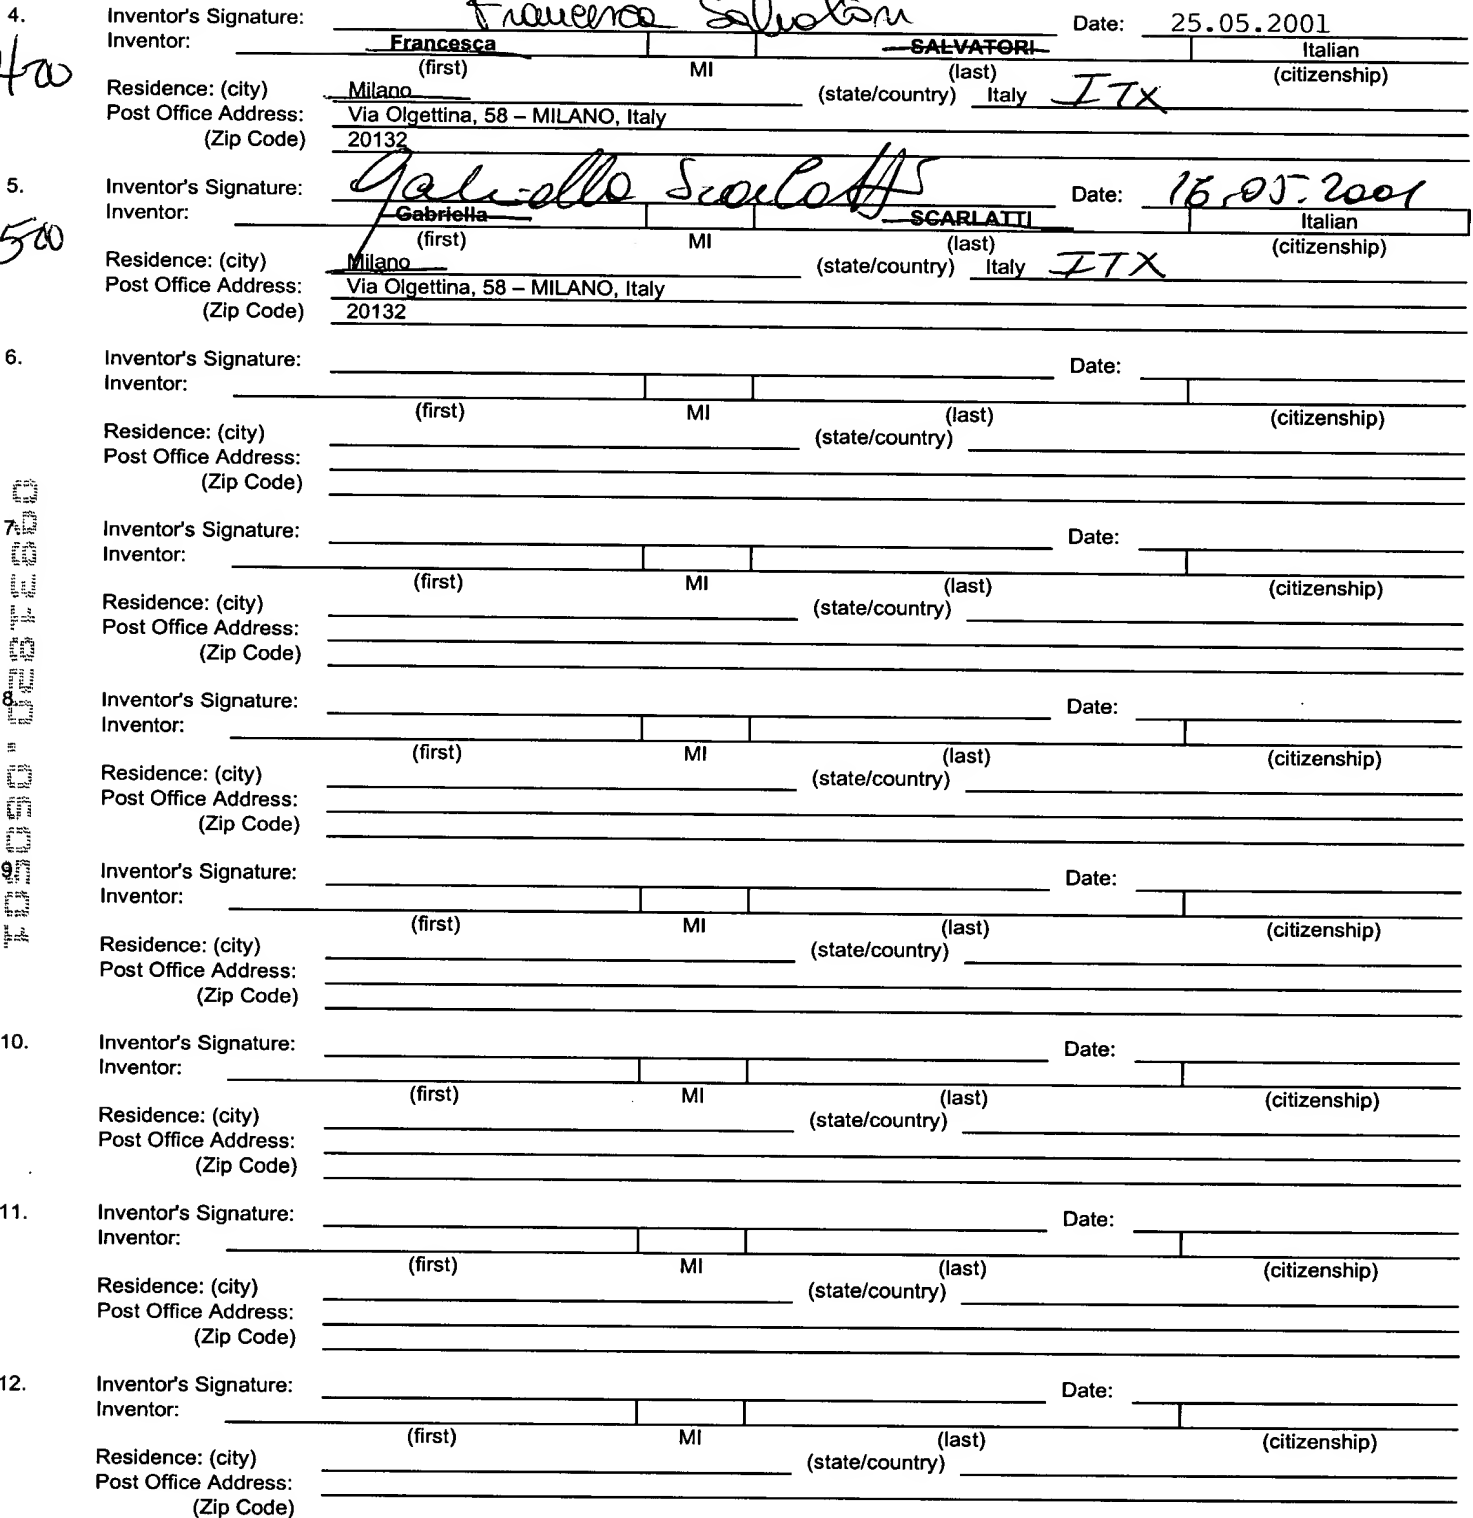 4. Inventor's Signature: Francesca Salvatori Date: 25.05.2001
Inventor: Francesca SALVATORI Italian
(first) MI (last) (citizenship)
400
Residence: (city) Milano (state/country) Italy ITX
Post Office Address: Via Olgettina, 58 – MILANO, Italy
(Zip Code) 20132
5. Inventor's Signature: Gabriella Scarlatti Date: 16.05.2001
Inventor: Gabriella SCARLATTI Italian
500
(first) MI (last) (citizenship)
Residence: (city) Milano (state/country) Italy ITX
Post Office Address: Via Olgettina, 58 – MILANO, Italy
(Zip Code) 20132
6. Inventor's Signature: Date:
Inventor:
(first) MI (last) (citizenship)
Residence: (city) (state/country)
Post Office Address:
(Zip Code)
7. Inventor's Signature: Date:
Inventor:
(first) MI (last) (citizenship)
Residence: (city) (state/country)
Post Office Address:
(Zip Code)
8. Inventor's Signature: Date:
Inventor:
(first) MI (last) (citizenship)
Residence: (city) (state/country)
Post Office Address:
(Zip Code)
9. Inventor's Signature: Date:
Inventor:
(first) MI (last) (citizenship)
Residence: (city) (state/country)
Post Office Address:
(Zip Code)
10. Inventor's Signature: Date:
Inventor:
(first) MI (last) (citizenship)
Residence: (city) (state/country)
Post Office Address:
(Zip Code)
11. Inventor's Signature: Date:
Inventor:
(first) MI (last) (citizenship)
Residence: (city) (state/country)
Post Office Address:
(Zip Code)
12. Inventor's Signature: Date:
Inventor:
(first) MI (last) (citizenship)
Residence: (city) (state/country)
Post Office Address:
(Zip Code)